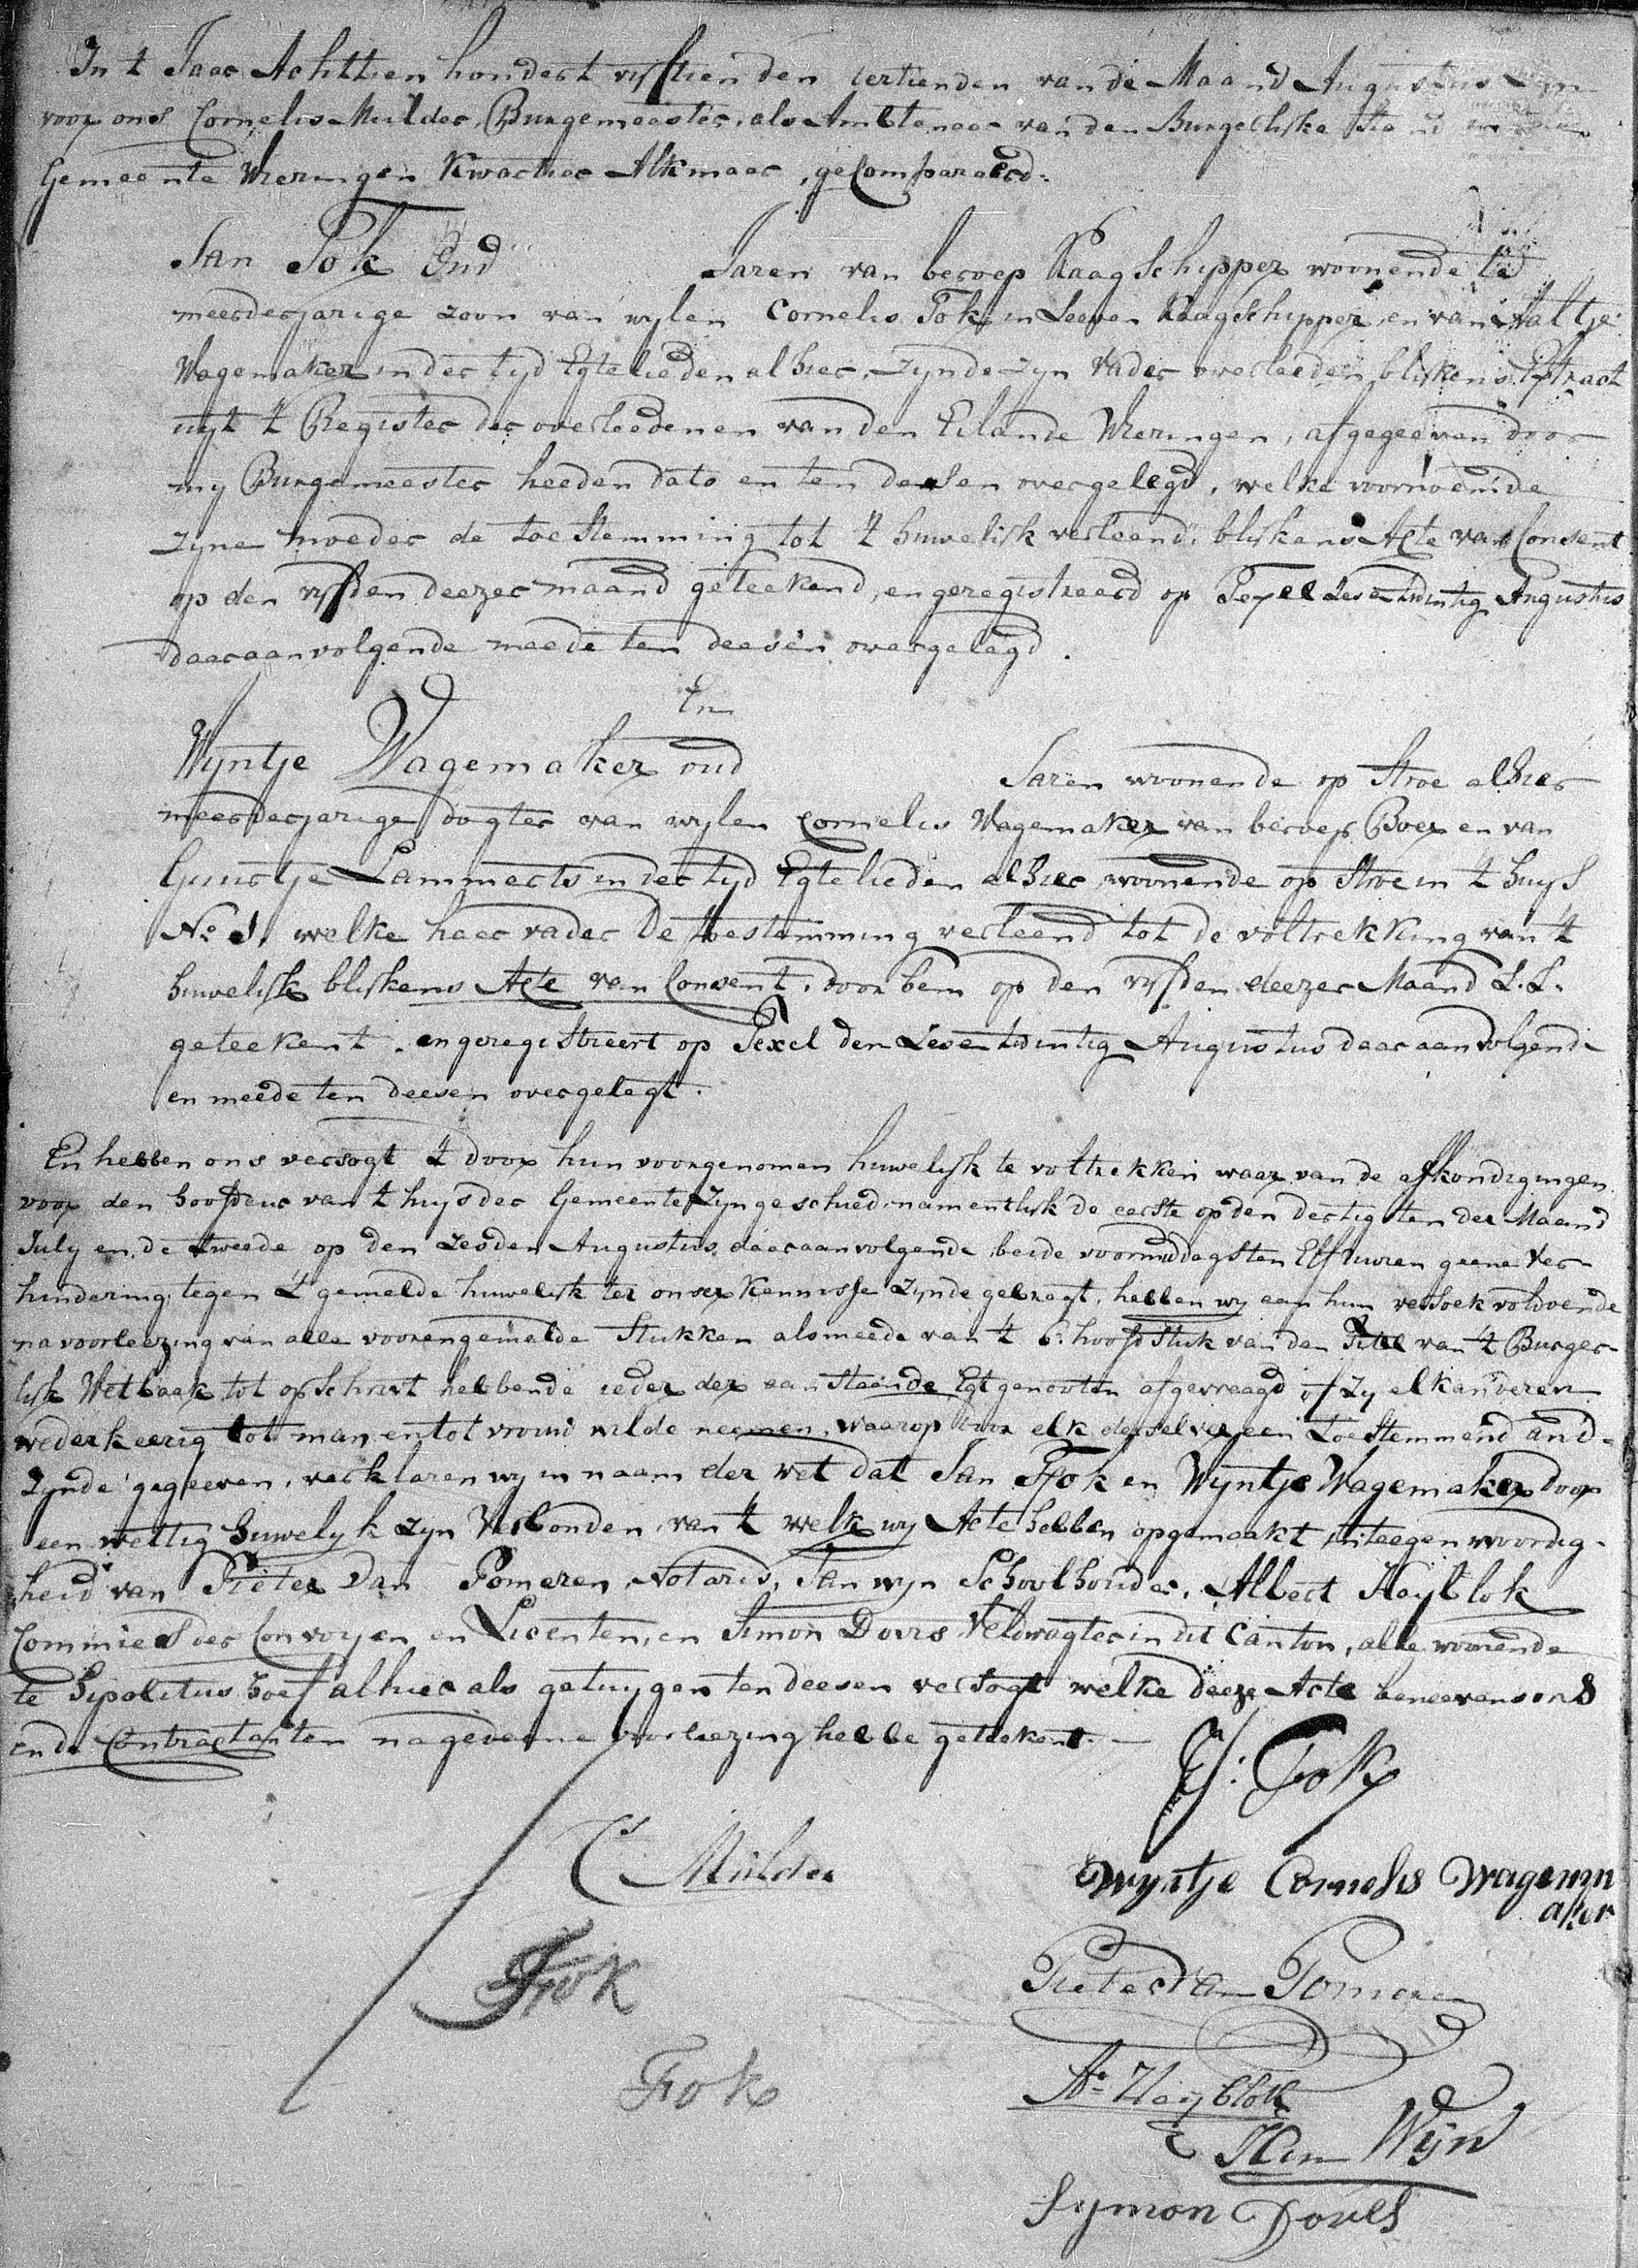 In 't Jaar Achttien hondert vyftien den dertienden van de Maand Augustus zyn
voor ons Cornelis Mulder, Burgemeester, als Amtenaar van den Burgerlijke Stand
Gemeente Wieringen Kwartier Alkmaar, gecompareerd.
Jan Fok Oud Jaren van beroep Kaagschipper woonende te
meerderjarige zoon van wylen Cornelis Fok in Leeven Kaagschipper, en van Aaltje
Wagemaker in der tyd Egtelieden alhier, zynde zyn Vader overleeden, blijkens Extract
uyt 't Register der overleedenen van den Eilande Wieringen, afgegeeven door
my Burgemeester heeden dato en ten deesen overgelegd, welke voornoemde
zyne moeder de toestemming tot 't huwelijk verleend, blijkens Acte van Consent
op den vyfden deezer maand geteekend, en geregistreerd op Texel den twintig Augustus
daaraanvolgende meede ten deesen overgelegd.
En
Wyntje Wagemaker oud Jaren woonende op Stroe alhier
meerderjarige dogter van wylen Cornelis Wagemaker van beroep Boer en van
Guurtje Lammerts in der tyd Egtelieden alhier, woonende op Stroe in 't huys
No 1. welke haar vader de toestemming verleend tot de voltrekking van 't
huwelijk blijkens Acte van Consent, door hem op den vyfden deezer Maand L.L.
geteekent, en geregistreert op Texel den twintig Augustus daaraanvolgende
en meede ten deesen overgelegt.
En hebben ons versogt 't door hun voorgenomen huwelijk te voltrekken waar van de afkondigingen
voor den hoofdeur van 't huys der Gemeente zyn geschied, namentlijk de eerste op den dertigsten der Maand
July en de tweede op den zesden Augustus daaraanvolgende beide voormiddags ten Elf uuren geene ver-
hindering tegen 't gemelde huwelijk ter onser kennisse zynde gebragt, hebben wy aan hun versoek voldoende
na voorleezing van alle voorengemelde Stukken alsmeede van 't 6e hoofdstuk van den Titel van 't Burger-
lijk Wetboek tot opschrift hebbende ieder der aanstaande Egtgenooten afgevraagd of zy elkanderen
wederkeerig tot man en tot vrouw wilde neemen, waarop door elk derselver een toestemmend and-
zynde gegeeven, verklaren wy in naam der wet dat Jan Fok en Wyntje Wagemaker door
een wettig huwelyk zyn Verbonden, van 't welk wy Acte hebben opgemaakt, in teegenwoordig-
heid van Pieter Van Pomeren, Notaris, Jan wyn Schoolhouder, Albert Heyblok
Commies der Convoyen en Licenten, en Simon Doves Veldwagter in dit Canton, alle woonende
te Hipolitus hoef alhier als getuygen ten deesen versogt welke deeze Acte beneevens ons
en de Contractanten na gedaane voorleezing hebbe geteekent.
J: Fok
C Mulder
Wyntje Cornelis Wagem
aker
Fok
Pieter Van Pomeren
Fok
Ab Heyblok
Wyn
Symon Doves